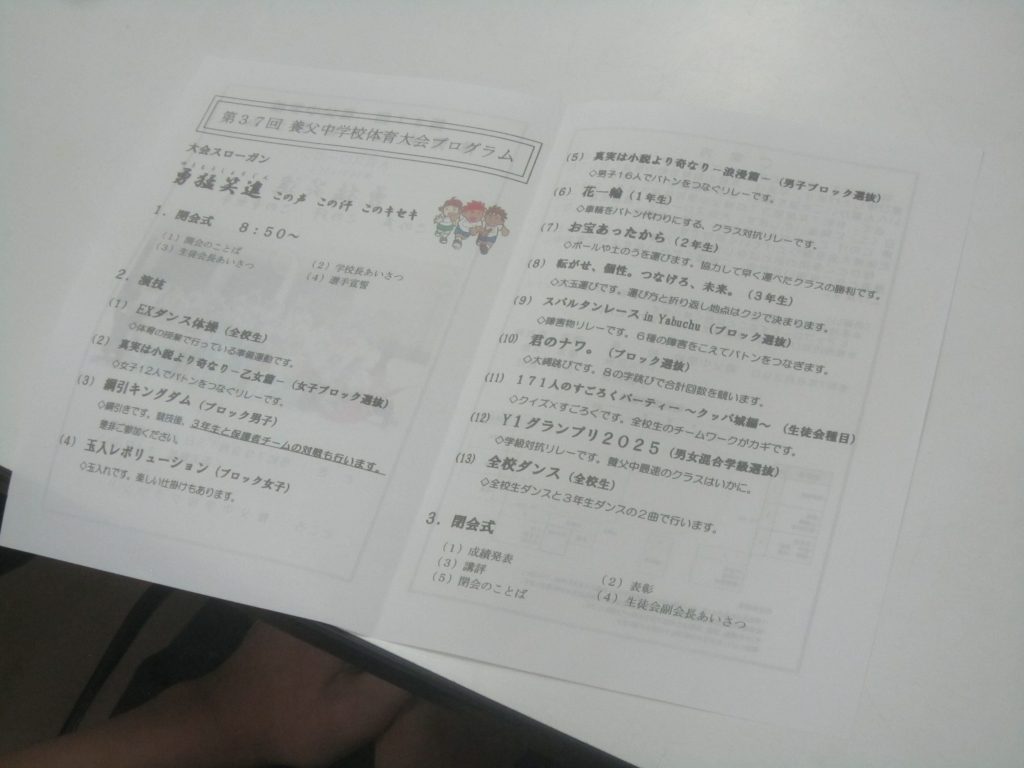 第37回 養父中学校体育大会プログラム
大会スローガン
勇猛笑進 この声 この汗 このキセキ
1．開会式 8：50～
（1）開会のことば （2）学校長あいさつ
（3）生徒会長あいさつ （4）選手宣誓
2．演技
（1） EXダンス体操（全校生）
◇体育の授業で行っている準備運動です。
（2） 真実は小説より奇なり－乙女篇－（女子ブロック選抜）
◇女子12人でバトンをつなぐリレーです。
（3） 綱引キングダム（ブロック男子）
◇綱引きです。競技後、3年生と保護者チームの対戦も行います。
是非ご参加ください。
（4） 玉入レボリューション（ブロック女子）
◇玉入れです。楽しい仕掛けもあります。
（5） 真実は小説より奇なり－浪漫篇－（男子ブロック選抜）
◇男子16人でバトンをつなぐリレーです。
（6） 花一輪（1年生）
◇車輪をバトン代わりにする、クラス対抗リレーです。
（7） お宝あったから（2年生）
◇ボールや土のうを運びます。協力して早く運べたクラスの勝利です。
（8） 転がせ、個性。つなげろ、未来。（3年生）
◇大玉運びです。運び方と折り返し地点はクジで決まります。
（9） スパルタンレース in Yabuchu（ブロック選抜）
◇障害物リレーです。6種の障害をこえてバトンをつなぎます。
（10） 君のナワ。（ブロック選抜）
◇大縄跳びです。8の字跳びで合計回数を競います。
（11） 171人のすごろくパーティー ～クッパ城編～（生徒会種目）
◇クイズ×すごろくです。全校生のチームワークがカギです。
（12） Y1グランプリ2025（男女混合学級選抜）
◇学級対抗リレーです。養父中最速のクラスはいかに。
（13） 全校ダンス（全校生）
◇全校生ダンスと3年生ダンスの2曲で行います。
3．閉会式
（1）成績発表 （2）表彰
（3）講評 （4）生徒会副会長あいさつ
（5）閉会のことば